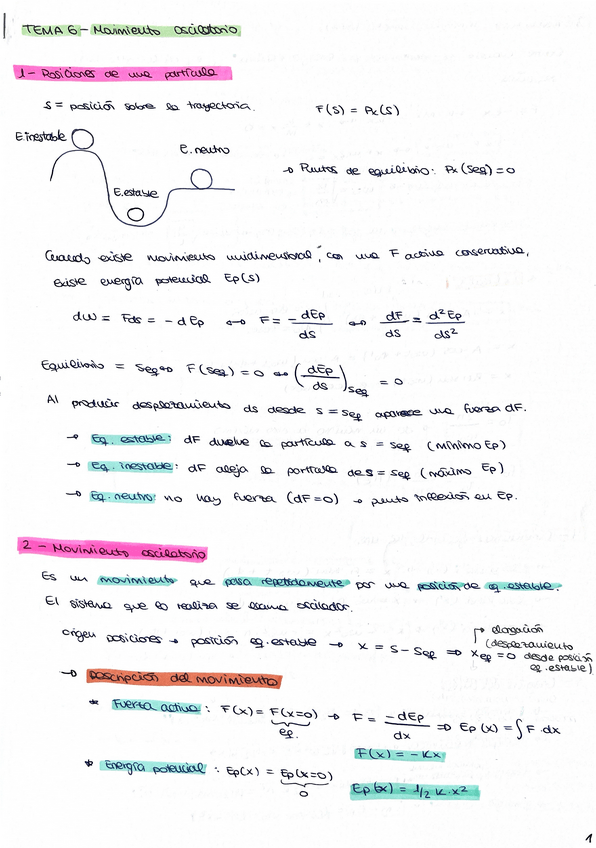 TEMA 6 - Movimiento oscilatorio
1 - Posiciones de una partícula
S = posición sobre la trayectoria. F(S) = Pt(S)
E.inestable
E. neutro
E.estable
→ Puntos de equilibrio: Pt(Seq) = 0
Cuando existe movimiento unidimensional, con una F activa conservativa,
existe energía potencial Ep(s)
dW = Fds = - dEp ⇔ F = - dEp/dS ⇔ dF/dS = d²Ep/dS²
Equilibrio = Seq ⇔ F(Seq) = 0 ⇔ (dEp/ds)Seq = 0
Al producir desplazamiento ds desde s = seq aparece una fuerza dF.
→ Eq. estable: dF duelve la partícula a s = seq (mínimo Ep)
→ Eq. inestable: dF aleja la partícula de s = seq (máximo Ep)
→ Eq. neutro: no hay fuerza (dF=0) → punto inflexión en Ep.
2 - Movimiento oscilatorio
Es un movimiento que pasa repetidamente por una posición de eq. estable.
El sistema que lo realiza se llama oscilador.
origen posiciones → posición eq. estable → x = s - Seq ⇒ xeq = 0
elongación
(desplazamiento
desde posición
eq. estable)
→ Descripción del movimiento
* Fuerza activa: F(x) = F(x=0) → F = -dEp/dx ⇒ Ep(x) = ∫F·dx
eq.
F(x) = -Kx
* Energía potencial: Ep(x) = Ep(x=0)
0
Ep(x) = 1/2 K·x²
1